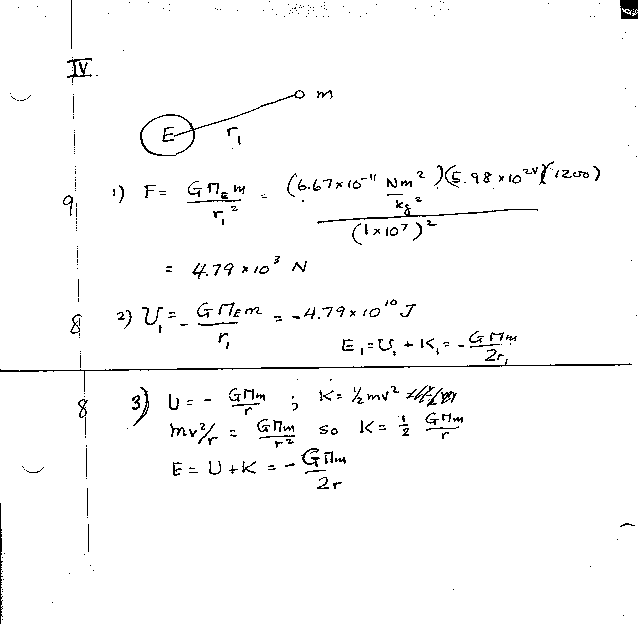 IV
m
E
r₁
9
1) F = GM_E m / r₁² = (6.67×10⁻¹¹ Nm²/kg²)(5.98×10²⁴)(1200) / (1×10⁷)²
= 4.79×10³ N
8
2) U₁ = - GM_E m / r₁ = -4.79×10¹⁰ J
E₁ = U₁ + K₁ = - GMm / 2r₁
8
3) U = - GMm / r ; K = ½mv²
mv²/r = GMm / r² so K = ½ GMm / r
E = U + K = - GMm / 2r